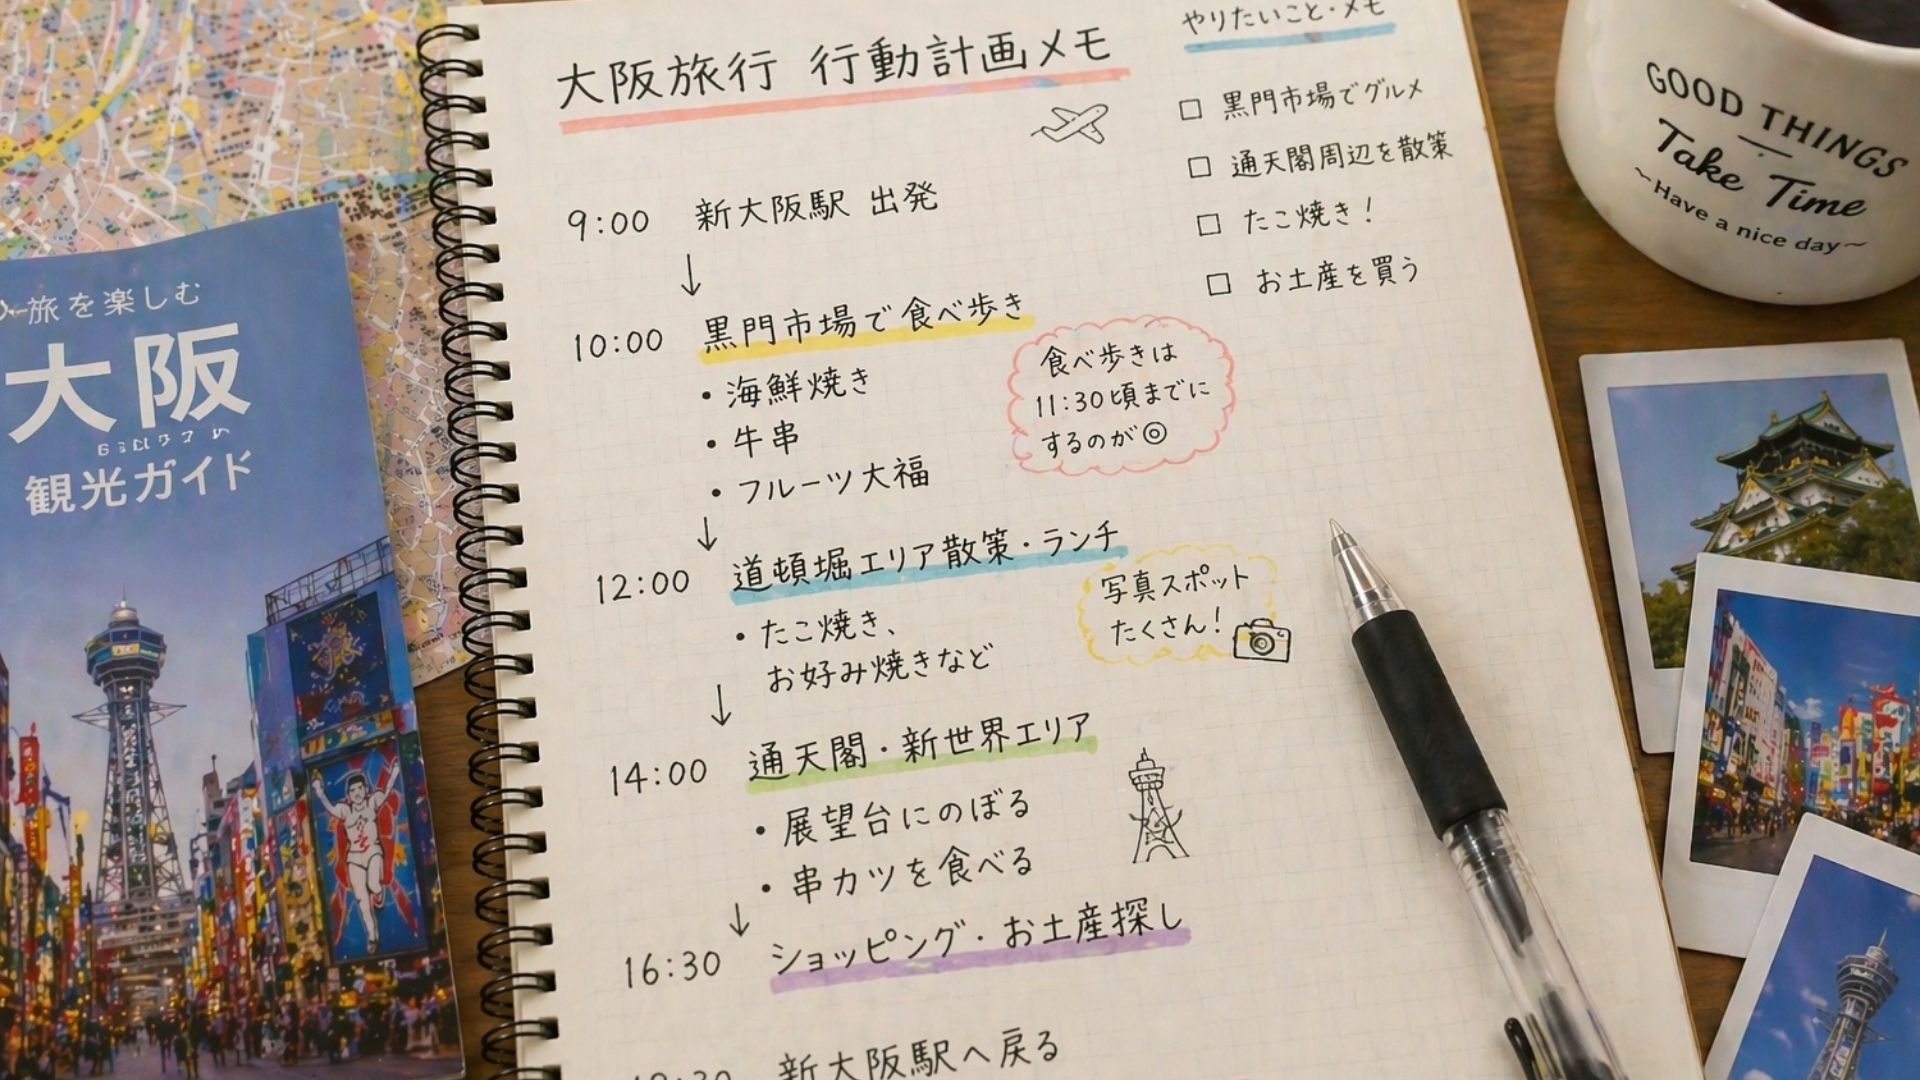 大阪旅行 行動計画メモ
9:00 新大阪駅 出発
↓
10:00 黒門市場で食べ歩き
・海鮮焼き
・牛串
・フルーツ大福
食べ歩きは
11:30頃までに
するのが◎
↓
12:00 道頓堀エリア散策・ランチ
・たこ焼き、
お好み焼きなど
写真スポット
たくさん!
↓
14:00 通天閣・新世界エリア
・展望台にのぼる
・串カツを食べる
↓
16:30 ショッピング・お土産探し
新大阪駅へ戻る
やりたいこと・メモ
□ 黒門市場でグルメ
□ 通天閣周辺を散策
□ たこ焼き!
□ お土産を買う
旅を楽しむ
大阪
観光ガイド
GOOD THINGS
Take Time
~Have a nice day~